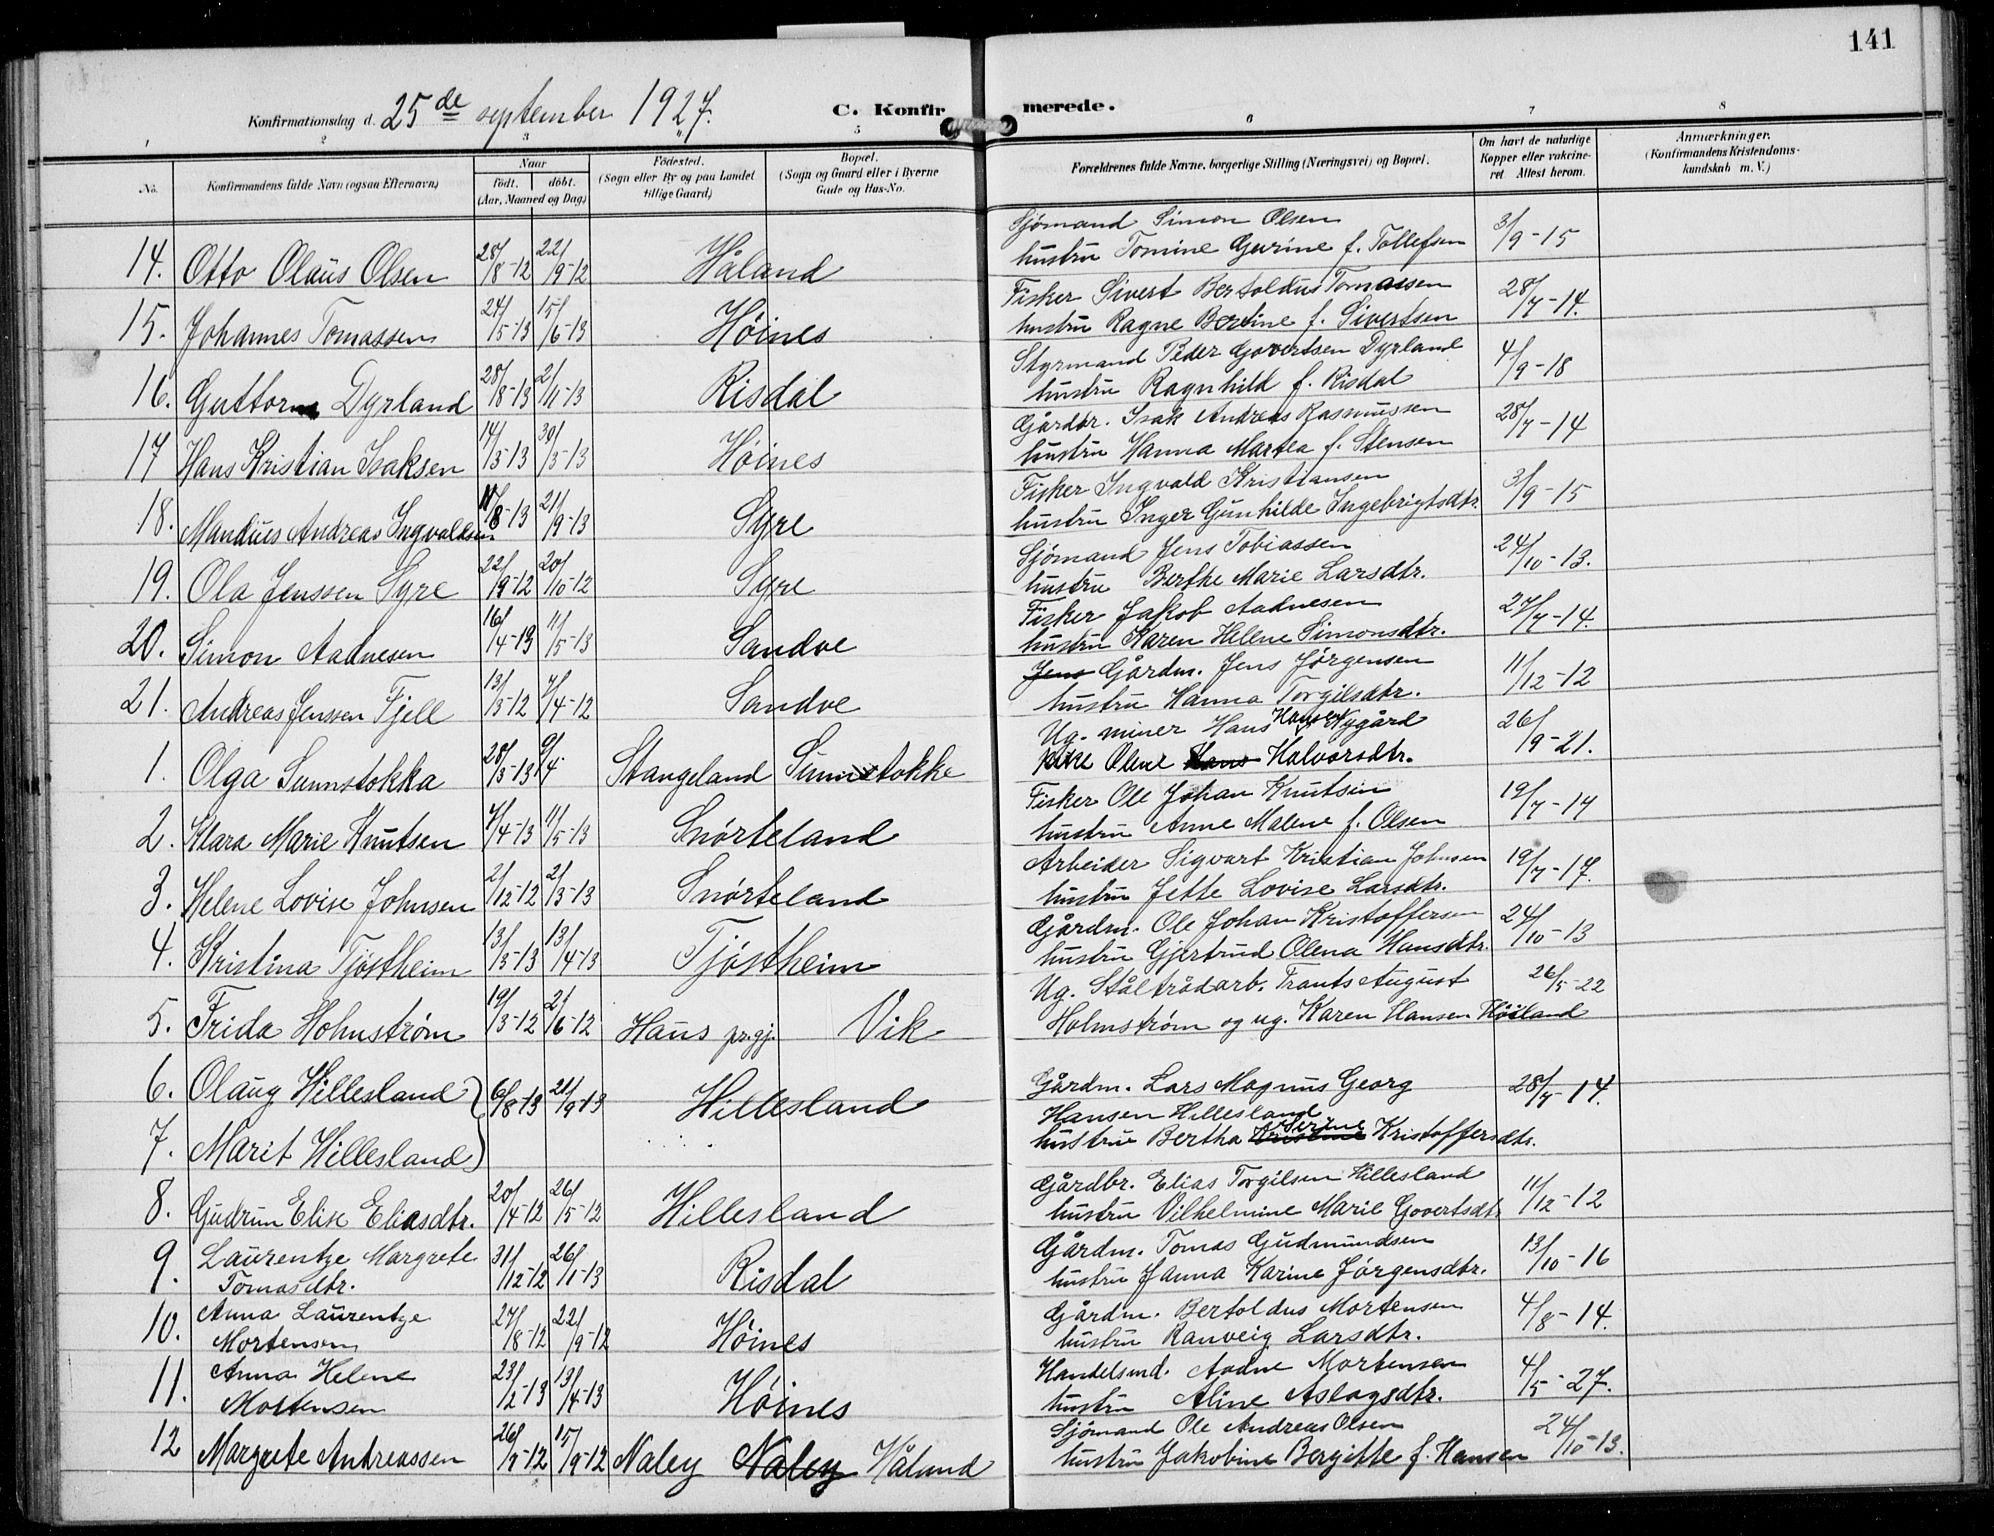 141
Konfirmationsdag d. 25de september 1927.
C. Konfirmerede.
1 2 3 5 6 7 8
No. Konfirmandens fulde Navn (ogsaa Efternavn) Naar født. døbt. (Aar, Maaned og Dag) Fødested. (Sogn eller By og paa Landet tillige Gaard) Bopæl. (Sogn og Gaard eller i Byerne Gade og Hus-No. Forældrenes fulde Navne, borgerlige Stilling (Næringsvei) og Bopæl. Om havt de naturlige Kopper eller vakcineret Attest herom. Anmærkninger. (Konfirmandens Kristendomskundskab m. V.)
14. Otto Olaus Olsen 28/8-12 22/9-12 Håland Sjømand Simon Olsen 3/9-15
hustru Tomine Gurine f. Tollefsen
15. Johannes Tomassen 24/5-13 15/6-13 Høines Fisker Sivert Bertoldus Tomassen 28/7-14.
hustru Ragne Bertine f. Sivertsen
16. Guttorm Dyrland 28/8-13 2/11-13 Risdal Styrmand Peder Govertsen Dyrland 4/9-18
hustru Ragnhild f. Risdal
17 Hans Kristian Isaksen 14/3-13 30/3-13 Høines Gårdbr. Isak Andreas Rasmussen 28/7-14
hustru Hanna Martea f. Stensen
18. Mandius Andreas Ingvaldsen 11/8-13 21/9-13 Syre Fisker Ingvald Kristiansen 3/9-15
hustru Inger Gunhilde Ingebrigtsdtr.
19. Ola Jenssen Syre 22/9-12 20/10-12 Syre Sjømand Jens Tobiassen 24/10-13.
hustru Berthe Marie Larsdtr.
20. Simon Aadnesen 16/4-13 11/5-13 Sandve Fisker Jakob Aadnesen 27/7-14.
hustru Karen Helene Simonsdtr.
21. Andreas Jenssen Fjell 13/3-12 7/4-12 Sandve Jens Gårdm. Jens Jørgensen 11/12-12
hustru Hanna Torgilsdtr.
1. Olga Sunnstokka 28/3-13 9/4 Stangeland Sunnstokke Ug. miner Hans Hansen Nygård 26/9-21.
pike Olene Hans Halvorsdtr.
2. Klara Marie Knutsen 7/4-13 11/5-13 Snørteland Fisker Ole Johan Knutsen 19/7-14
hustru Anne Malene f. Olsen
3. Helene Lovise Johnsen 2/12-12 2/3-13 Snørteland Arbeider Sigvart Kristian Johnsen 19/7-17.
hustru Jette Lovise Larsdtr.
4. Kristina Tjøstheim 13/3-13 13/4-13 Tjøstheim Gårdm. Ole Johan Kristoffersen 24/10-13
hustru Gjertrud Olena Hansdtr.
5. Frida Holmstrøm 19/3-12 2/6-12 Haus pr.gj. Vik Ug. Ståltrådarb. Frants August 26/5-22
Holmstrøm og ug. Karen Hansen Høiland
6. Olaug Hillesland 6/8-13 21/9-13 Hillesland Gårdm. Lars Magnus Georg 28/7-14.
Hansen Hillesland
7. Marit Hillesland hustru Bertha Kristine Serine Kristoffersdtr.
8. Gudrun Elise Eliasdtr. 20/4-12 26/5-12 Hillesland Gårdbr. Elias Torgilsen Hillesland 11/12-12
hustru Vilhelmine Marie Govertsdtr
9. Laurentze Margrete 31/12-12 26/1-13 Risdal Gårdm. Tomas Gudmundsen 13/10-16
Tomasdtr. hustru Janna Karine Jørgensdtr.
10. Anna Laurentze 27/8-12 22/9-12 Høines Gårdm. Bertoldus Mortensen 4/8-14.
Mortensen hustru Ranveig Larsdtr.
11. Anna Helene 23/2-13 13/4-13 Høines Handelsmd. Aadne Mortensen 4/5-27.
Mortensen hustru Aline Aslagsdtr.
12 Margrete Andreassen 26/7-12 15/9-12 Naley Naley Håland Sjømand Ole Andreas Olsen 24/10-13.
hustru Jakobine Bergitte f. Hansen